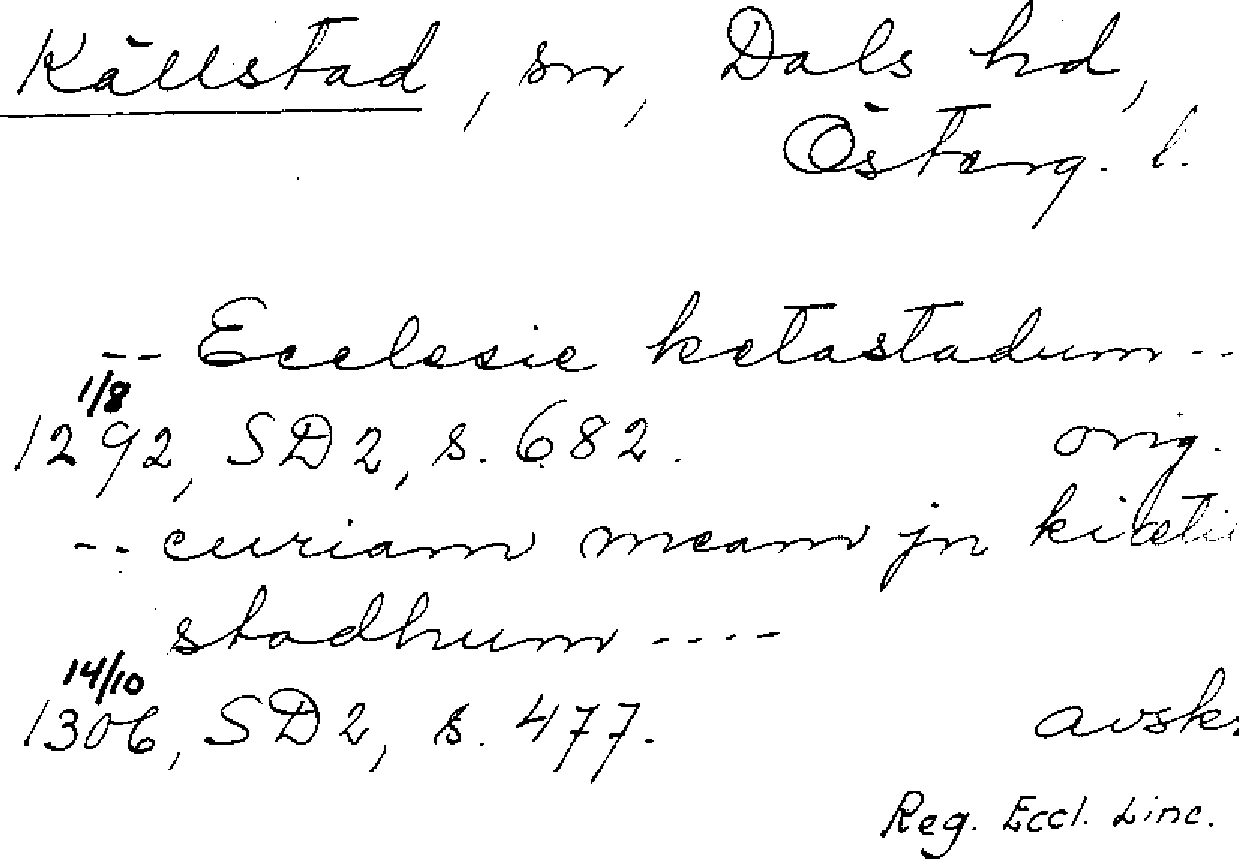 Källstad, sn, Dals hd,
Österg. l.
-- Ecclesie ketastadum --
1/8
1292, SD 2, s. 682. orig.
-- curiam meam jn
stadhum ----
14/10
1306, SD 2, s. 477. avskr.
Reg. Eccl. Linc.